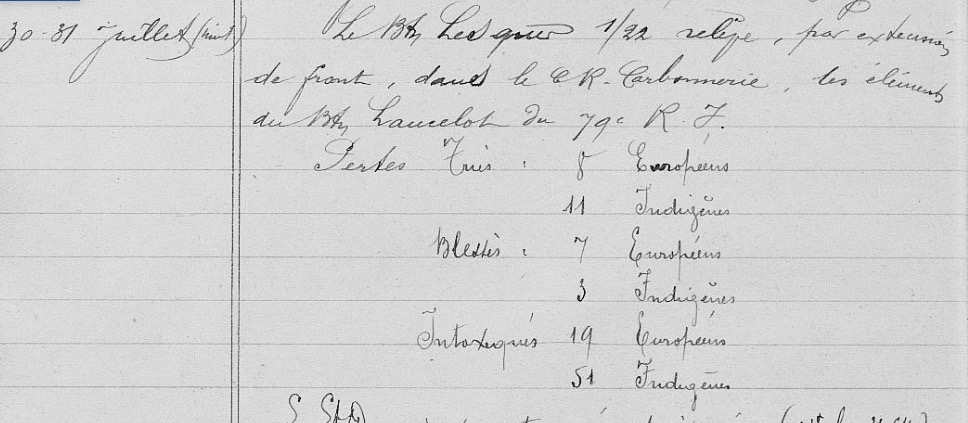 30-31 juillet (nuit) Le Btn Lesquer 1/22 relève, par extension
de front, dans le CR. Carbonnerie, les éléments
du Btn Lancelot du 79e R.I.
Pertes Tués : 8 Européens
11 Indigènes
Blessés : 7 Européens
3 Indigènes
Intoxiqués 19 Européens
51 Indigènes